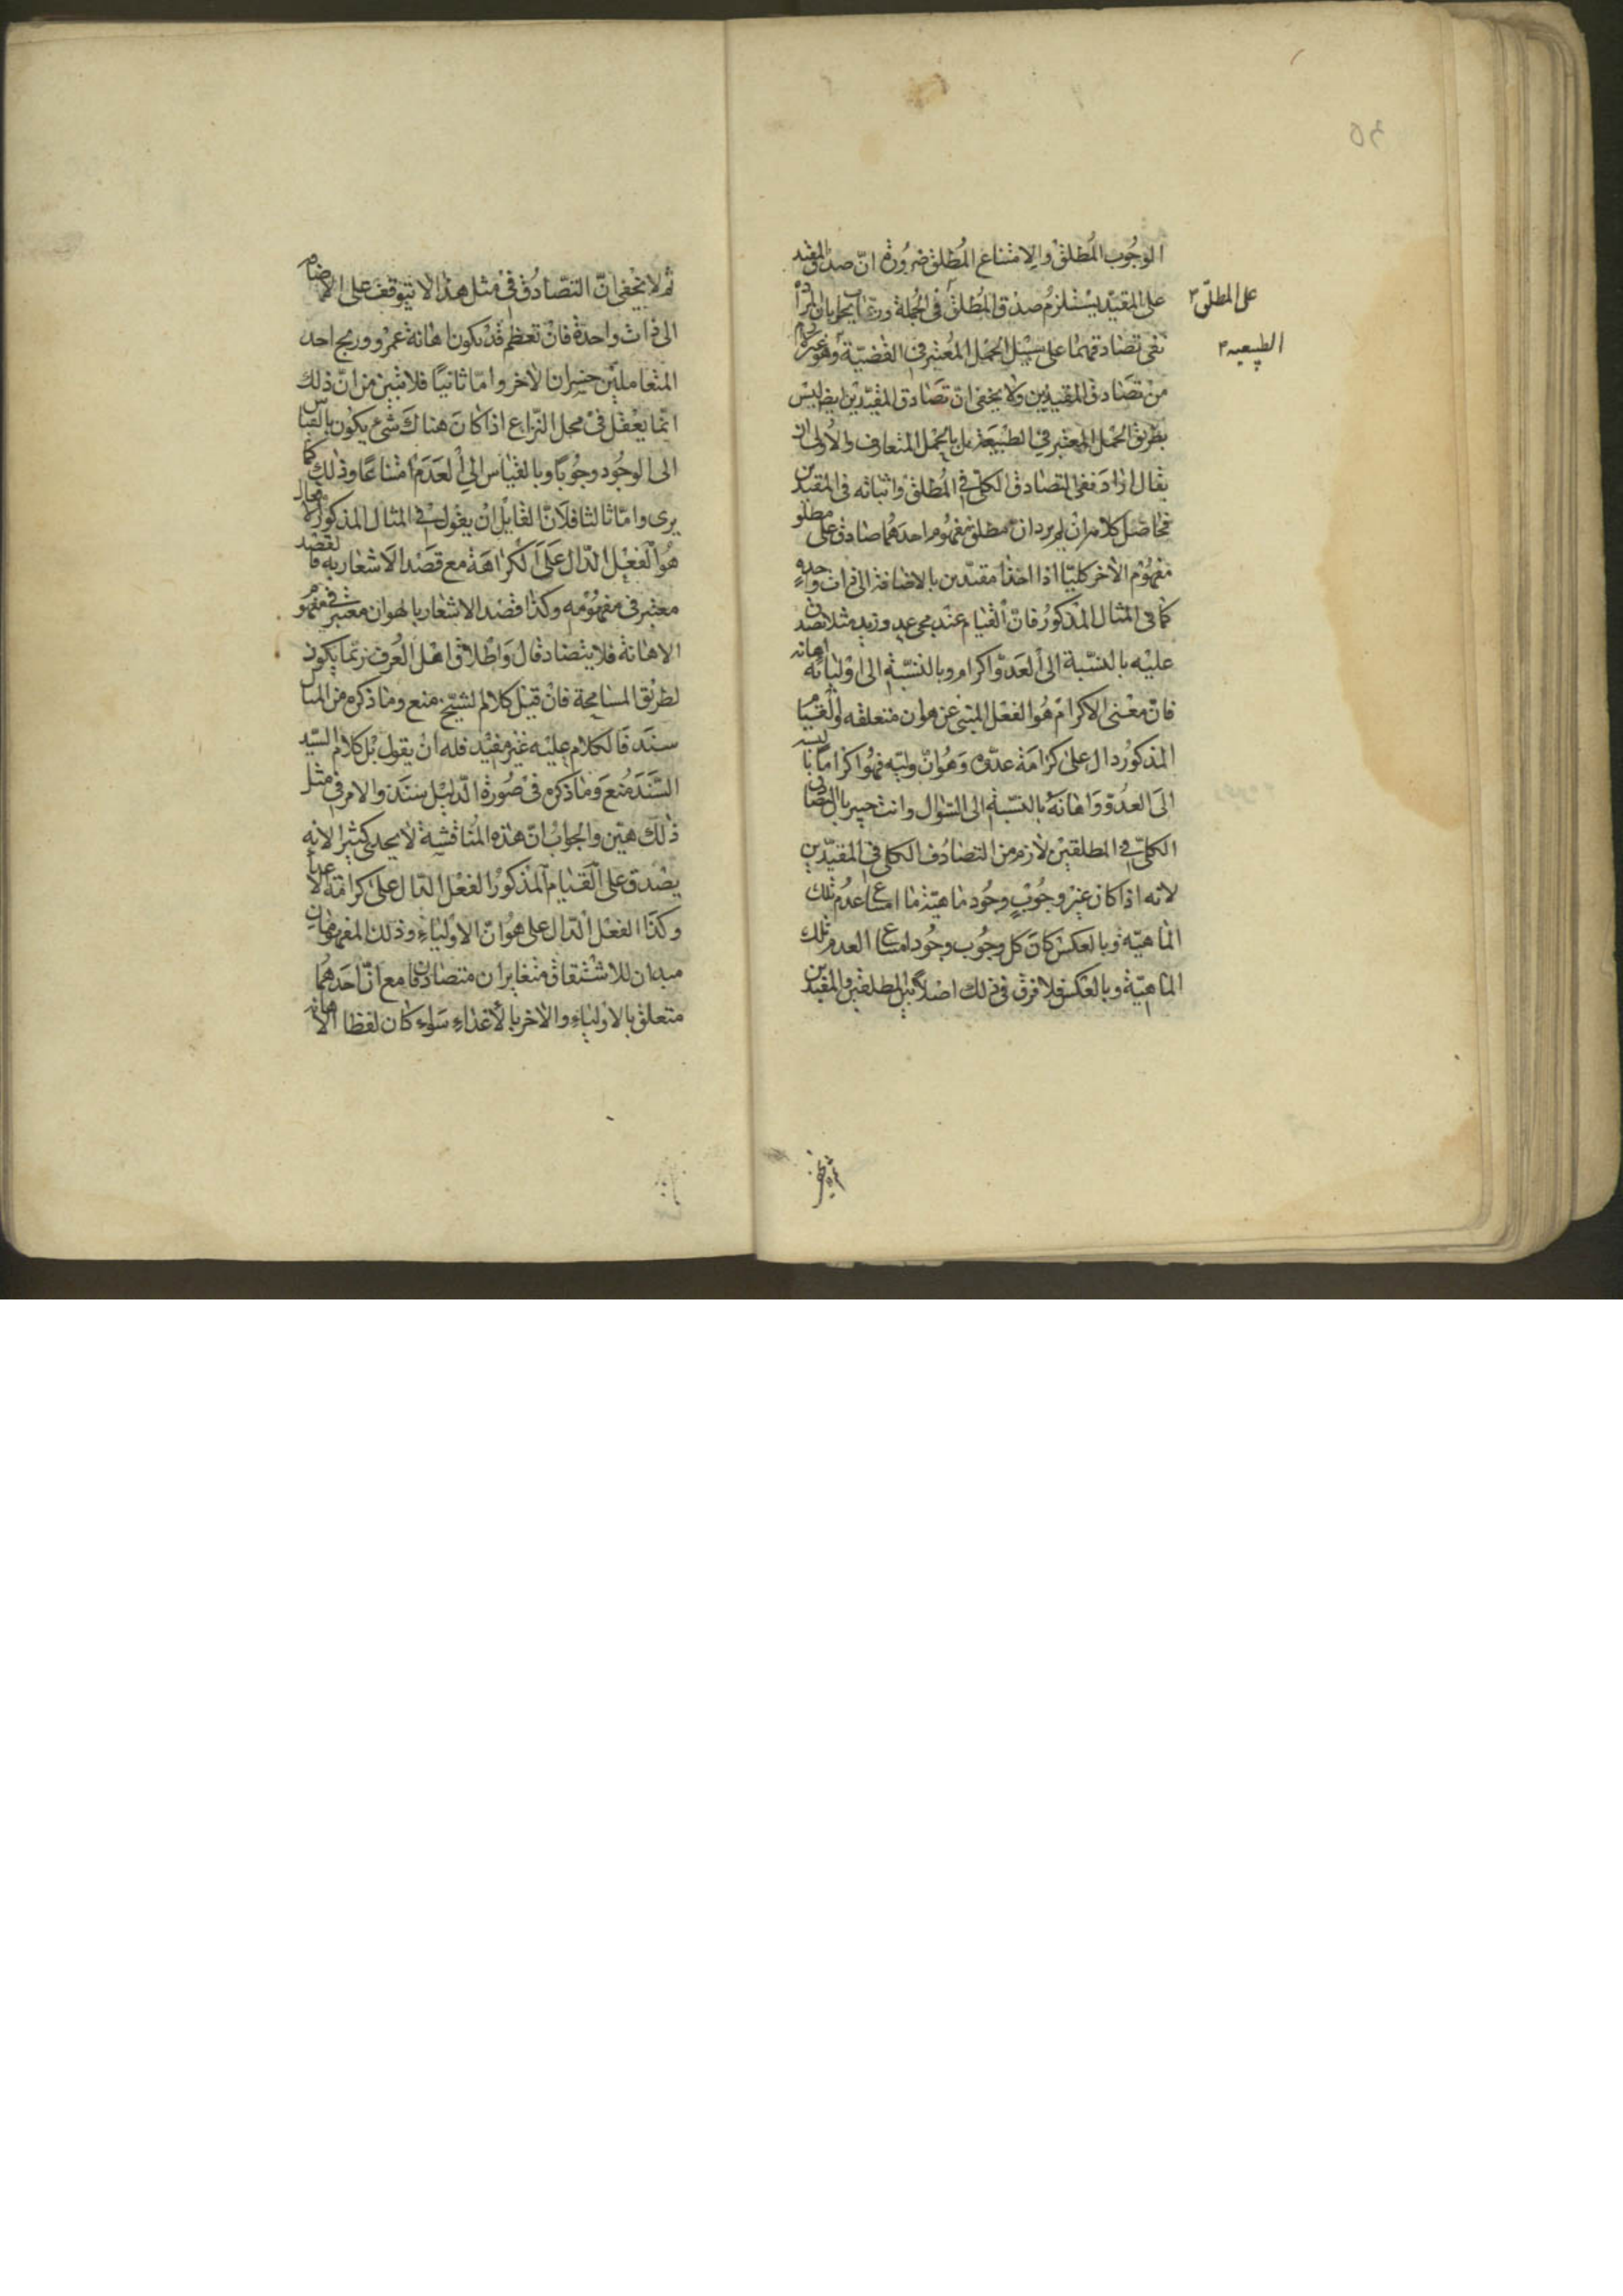 الوجوب المطلق والامتناع المطلق ضرورة ان صدق المقيد
على المقيد يستلزم صدق المطلق في الجملة وربما يجاب بان المراد
على المطلق ٣
نفى تصادقهما على سبيل الحمل المعتبر في القضية وهو غير لازم
الطبيعيه ٣
من تصادق المقيدين ولا يخفى ان تصادق المقيدين ايضا ليس
بطريق الحمل المعتبر في الطبيعة بل بالحمل المتعارف والاولى ان
يقال اراد نفى التصادق الكلي في المطلق واثباته في المقيدين
فحاصل كلامه انه لم يرد ان مطلق مفهوم احدهما صادق على مطلق
مفهوم الاخر كليا اذا اخذا مقيدين بالاضافة الى ذات واحدة
كما في المثال المذكور فان القيام عند مجى عدو زيد مثلا يصدق
عليه بالنسبة الى العدو اكرام وبالنسبة الى اوليائه اهانة
فان معنى الاكرام هو الفعل المنبى عن هوان متعلقه والقيام
المذكور دال على كرامة عدوه وهوان وليه فهو اكرام بالنسبة
الى العدو واهانة بالنسبة الى السؤال وانت خبير بان التصادق
الكلي في المطلقين لازم من التصادف الكلي في المقيدين
لانه اذا كان غير وجوب وجود ماهية ما امتناع عدم تلك
الماهية وبالعكس كان كل وجوب وجود امتناع العدم تلك
الماهية وبالعكس فلا فرق في ذلك اصلا بين المطلقين والمقيدين
ثم لا يخفى ان التصادق في مثل هذا لا يتوقف على الانضمام
الى ذات واحدة فان تعظيم قد يكون اهانة عمرو وربح احد
المتعاملين خسران الاخر واما ثانيا فلا تبين من ان ذلك
انما يعقل في محل النزاع اذا كان هناك شئ يكون بالقياس
الى الوجود وجوبا وبالقياس الى العدم امتناعا وذلك كما
يرى واما ثالثا فلان لقايل ان يقول في المثال المذكور
هو الفعل الدال على الكراهة مع قصد الاشعار به فالقصد
معتبر في مفهومه وكذا قصد الاشعار بالهوان معتبر في مفهوم
الاهانة فلا يتصادقان واطلاق اهل العرف ربما يكون
لطريق المسامحة فان قيل كلام الشيخ منع وما ذكره من المثال
سند فالكلام عليه غير مفيد فله ان يقول بل كلام السيد
السند منع وما ذكره في صورة الدليل سند والامر في مثل
ذلك هين والجواب ان هذه المناقشة لا يجدى كثيرا لانه
يصدق على القيام المذكور الفعل الدال على كرامة الاعداء
وكذا الفعل الدال على هوان الاولياء وذلك المفهومان
مبدان للاشتقاق متغايران متصادقان مع ان احدهما
متعلق بالاولياء والاخر بالاعداء سواء كان لفظا الاهانة